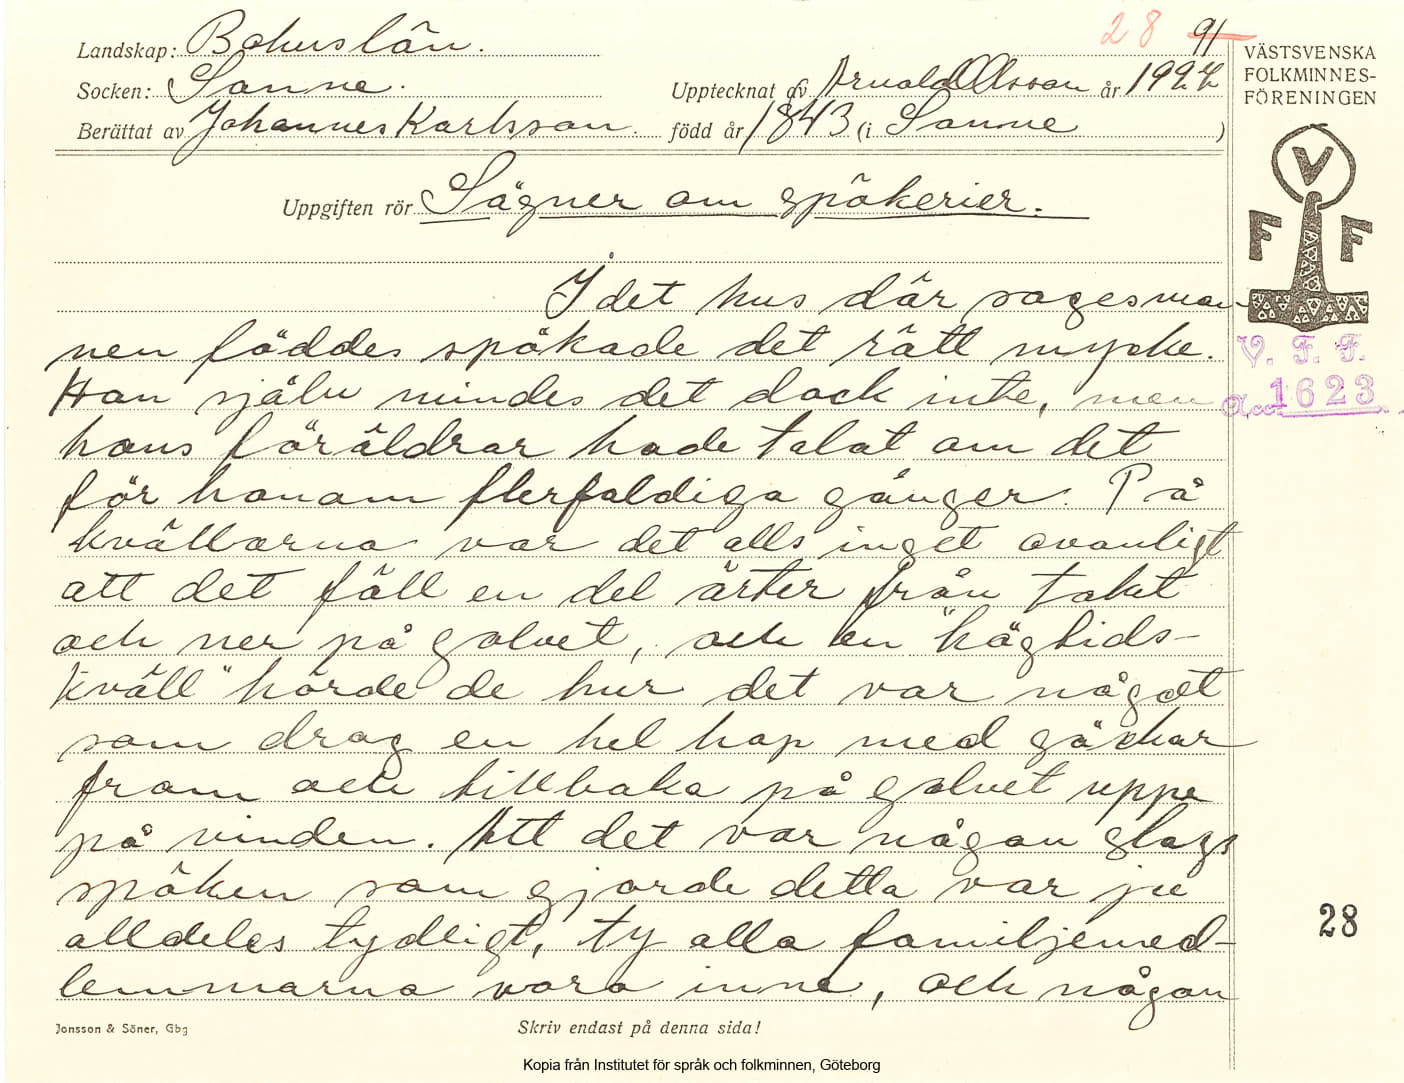 28 91
Landskap: Bohuslän.
Socken: Sanne.
Upptecknat av Arnold Olsson år 1927
Berättat av Johannes Karlsson. född år 1843 (i Sanne )
VÄSTSVENSKA
FOLKMINNES-
FÖRENINGEN
V
F F
V. F. F.
Acc. 1623.
Uppgiften rör Sägner om spökerier.
I det hus där sagesman-
nen föddes spökade det rätt mycke.
Han själv mindes det dock inte, men
hans föräldrar hade talat om det
för honom flerfaldiga gånger. På
kvällarna var det alls inget ovanligt
att det föll en del ärter från taket
och ner på golvet, och en "högtids-
kväll" hörde de hur det var något
som drog en hel hop med säckar
fram och tillbaka på golvet uppe
på vinden. Att det var någon slags
spöken som gjorde detta var ju
alldeles tydligt, ty alla familjemed-
lemmarna voro inne, och någon
28
Jonsson & Söner, Gbg
Skriv endast på denna sida!
Kopia från Institutet för språk och folkminnen, Göteborg